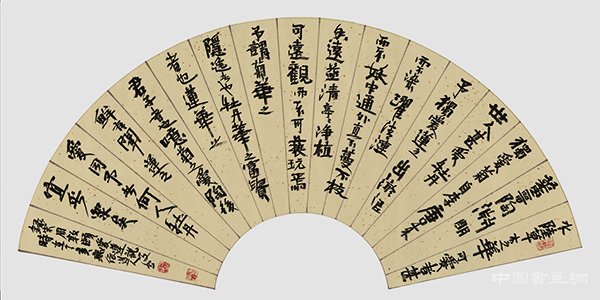 水陸草木之華可愛者甚
蕃晉陶淵明
獨愛菊自李唐來
世人甚愛牡丹
予獨愛蓮之出淤泥
而不染濯清漣
而不妖中通外直不蔓不枝
香遠益清亭亭淨植
可遠觀而不可褻玩焉
予謂菊華之
隱逸者也牡丹華之富貴
者也蓮華之
君子者也噫菊之愛陶後
鮮有聞蓮之
愛同予者何人牡丹
宜乎衆矣
中国書画網